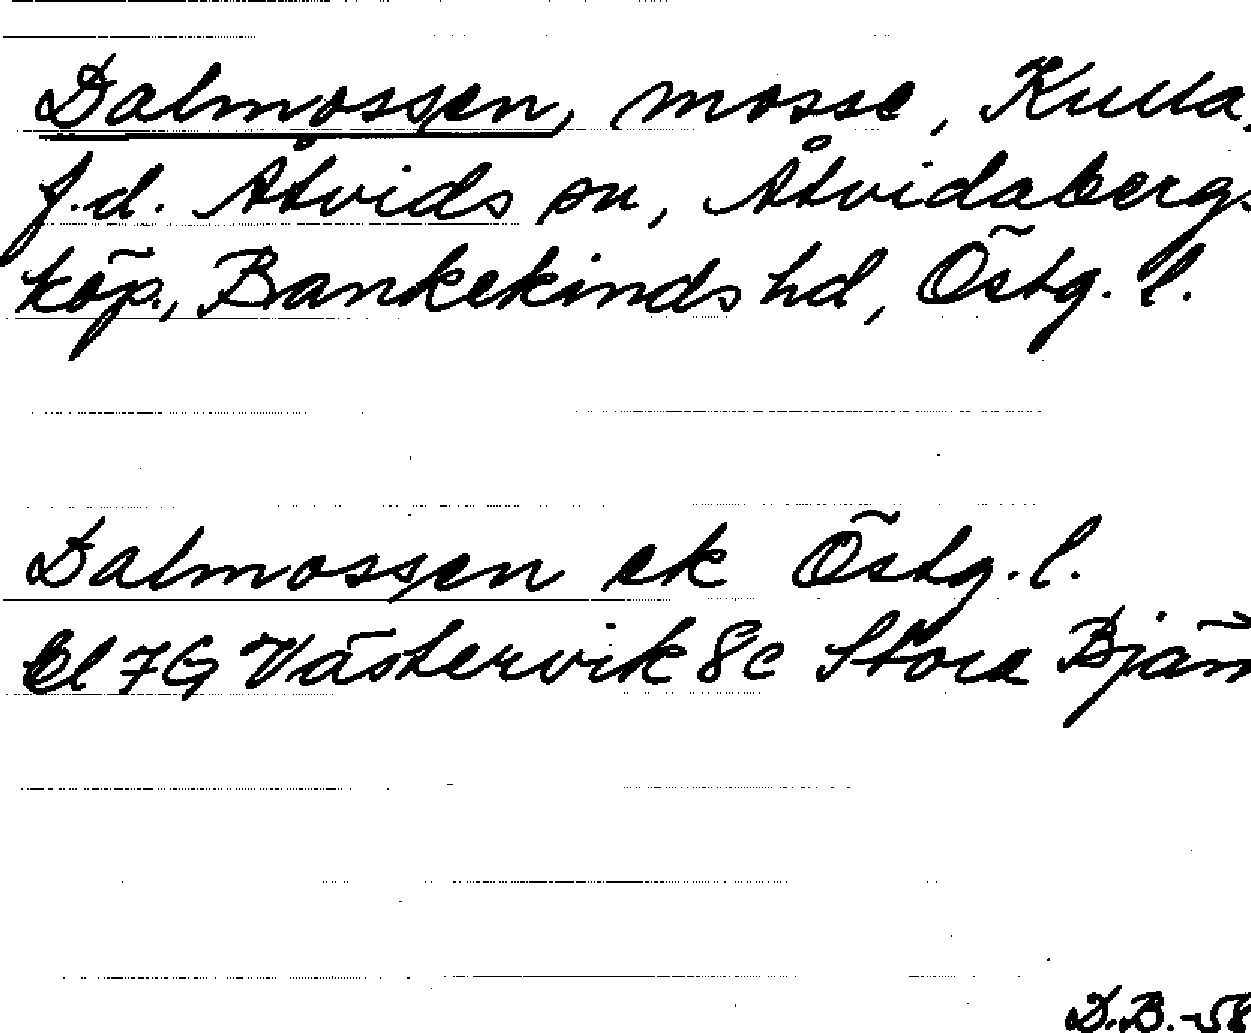 Dalmossen, mosse, Kulla,
f.d. Åtvids sn, Åtvidabergs
köp., Bankekinds hd, Östg. l.
Dalmossen ek Östg. l.
Bl 7G Västervik 8c Stora Bjäm
D.B.-58